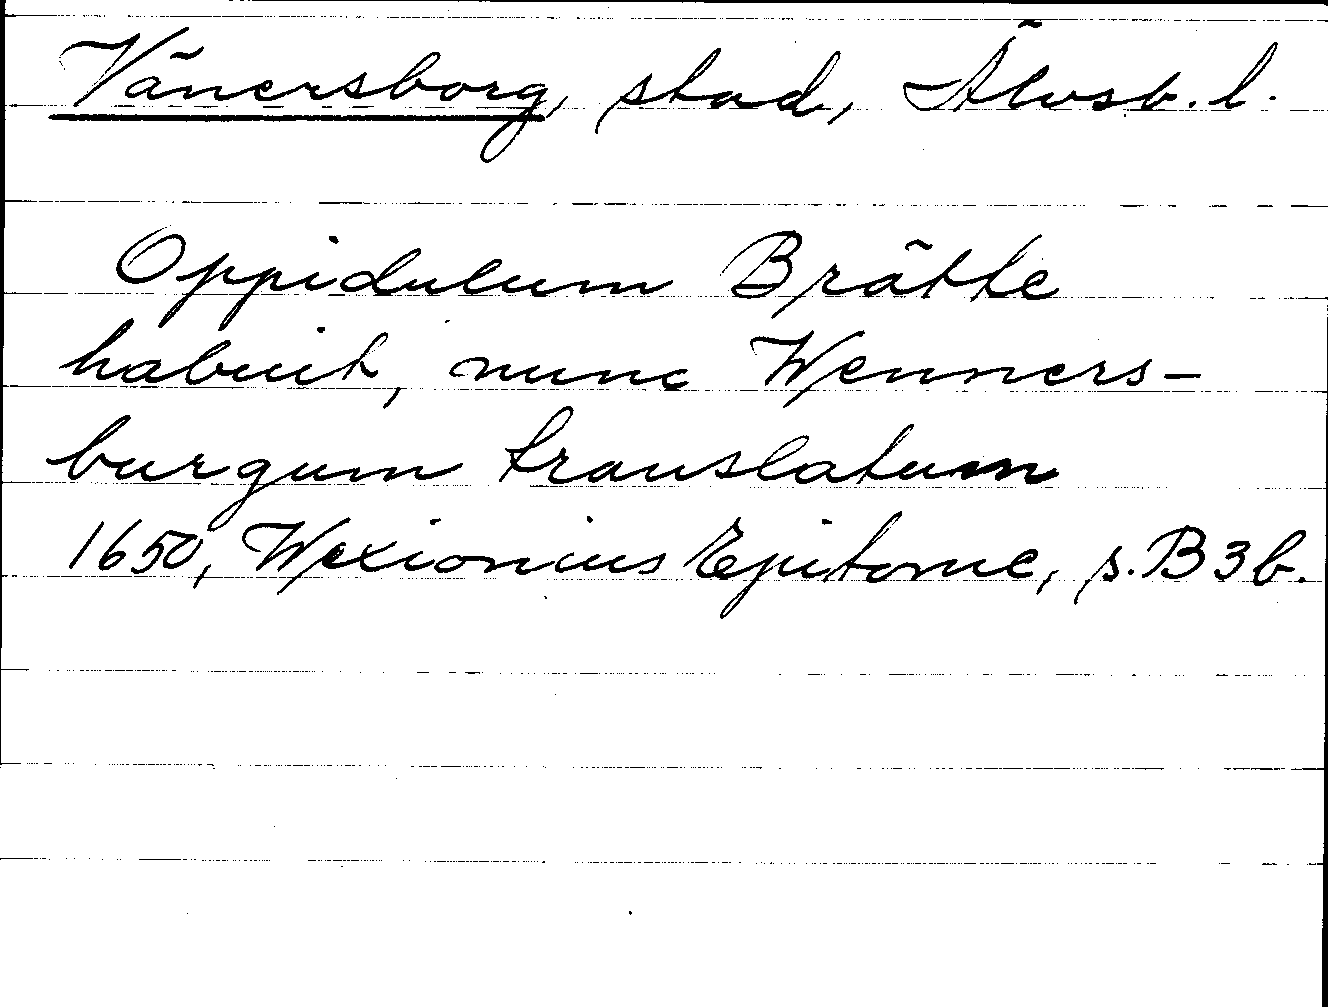 Vänersborg, stad, Älvsb. l.
Oppidulum Brätte
habuit, nunc Wenners-
burgum translatum
1650, Wexionius Epitome, s. B 3 b.